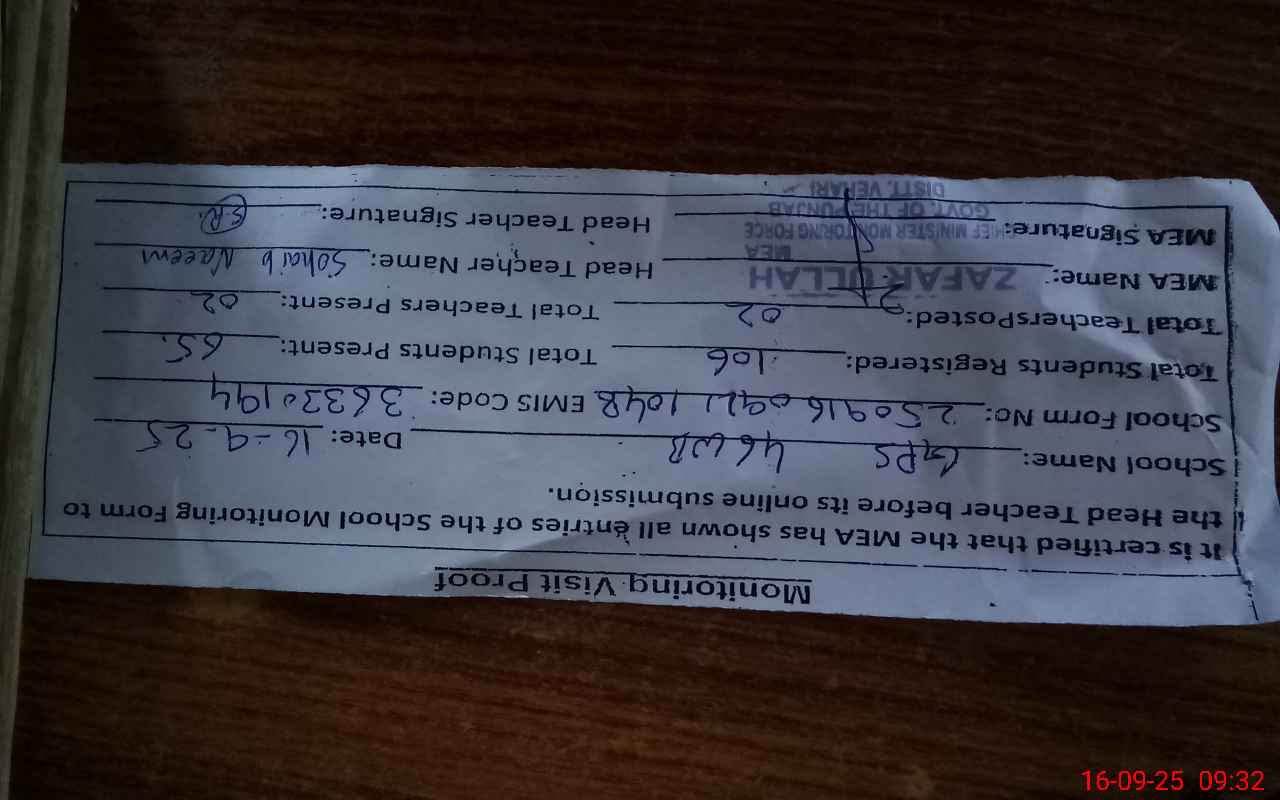 Monitoring Visit Proof
It is certified that the MEA has shown all entries of the School Monitoring Form to
the Head Teacher before its online submission.
School Name: GPS 46 WB Date: 16-9-25
School Form No: EMIS Code: 36330194
Total Students Registered: 106 Total Students Present: 65.
Total TeachersPosted: 02 Total Teachers Present: 02
MEA Name: ZAFAR ULLAH Head Teacher Name: Sohaib Naeem
MEA
MEA Signature: CHIEF MINISTER MONITORING FORCE Head Teacher Signature:
GOVT. OF THE PUNJAB
DISTT. VEHARI
16-09-25 09:32